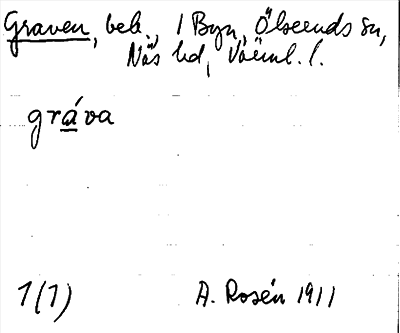 Graven, beb., i Byn, Ölseruds sn,
Näs hd, Värml. l.
gráva
1(1)
A. Rosén 1911